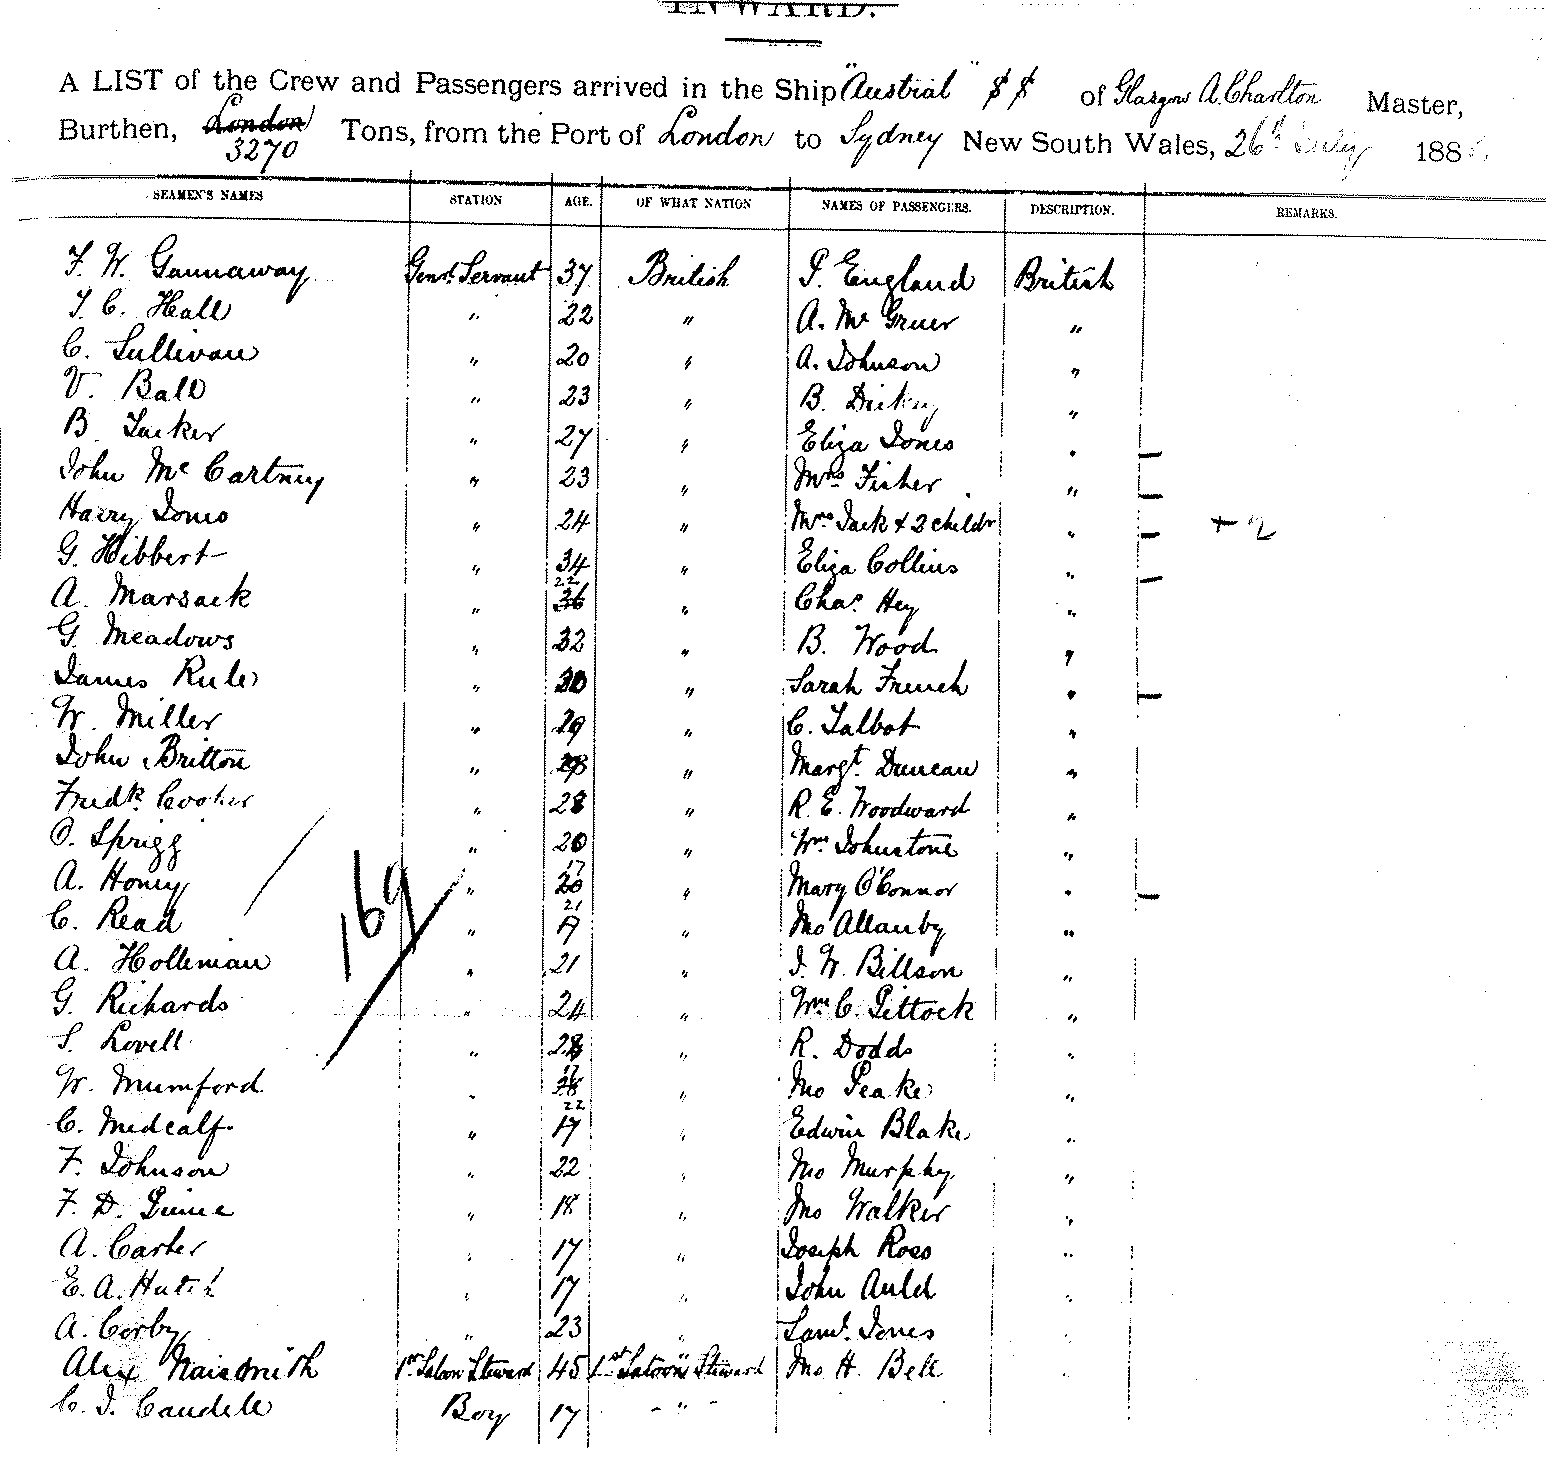 INWARD.
A LIST of the Crew and Passengers arrived in the Ship "Austral" SS of Glasgow A. Charlton Master,
Burthen, London 3270 Tons, from the Port of London to Sydney New South Wales, 26th July 188
SEAMEN'S NAMES STATION AGE. OF WHAT NATION NAMES OF PASSENGERS. DESCRIPTION. REMARKS.
F. W. Gannaway Genl. Servant 37 British P. England British
T. C. Hall " 22 " A. Mc Gruer "
C. Sullivan " 20 " A. Johnson "
V. Ball " 23 " B. "
B. Tucker " 27 " Eliza Jones " —
John Mc Cartney " 23 " Mrs Fisher " —
Harry Jones " 24 " Mrs Jack & 2 childr " — + 2
G. Hibbert " 34 " Eliza Collins " —
A. Marsack " 22 36 " Chas. Hey "
G. Meadows " 32 " B. Wood "
James Rule " 30 " Sarah French " —
W. Miller " 29 " C. Talbot "
John Britton " " Margt. Duncan "
Fredk. " 28 " R. E. Woodward "
O. Sprigg " 20 " Wm Johnstone "
A. Honey " 17 20 " Mary O'Connor " —
C. Read " 21 17 " Mo Allanby "
A. Holleman " 21 " J. W. Billson "
G. Richards " 24 " Wm C. Pittock "
S. Lovell " 28 " R. Dodds "
W. Mumford " 17 28 " Mo Peake "
C. Medcalf " 22 17 " Edwin Blake "
F. Johnson " 22 " Mo Murphy "
F. D. " 18 " Mo Walker "
A. Carter " 17 " Joseph Ross "
E. A. Hatch " 17 " John Auld "
A. Corby " 23 " Saml. Jones "
Alex Naismith 1st Saloon Steward 45 1st Saloon Steward Mo H. Bell "
C. J. Caudele Boy 17 "
169